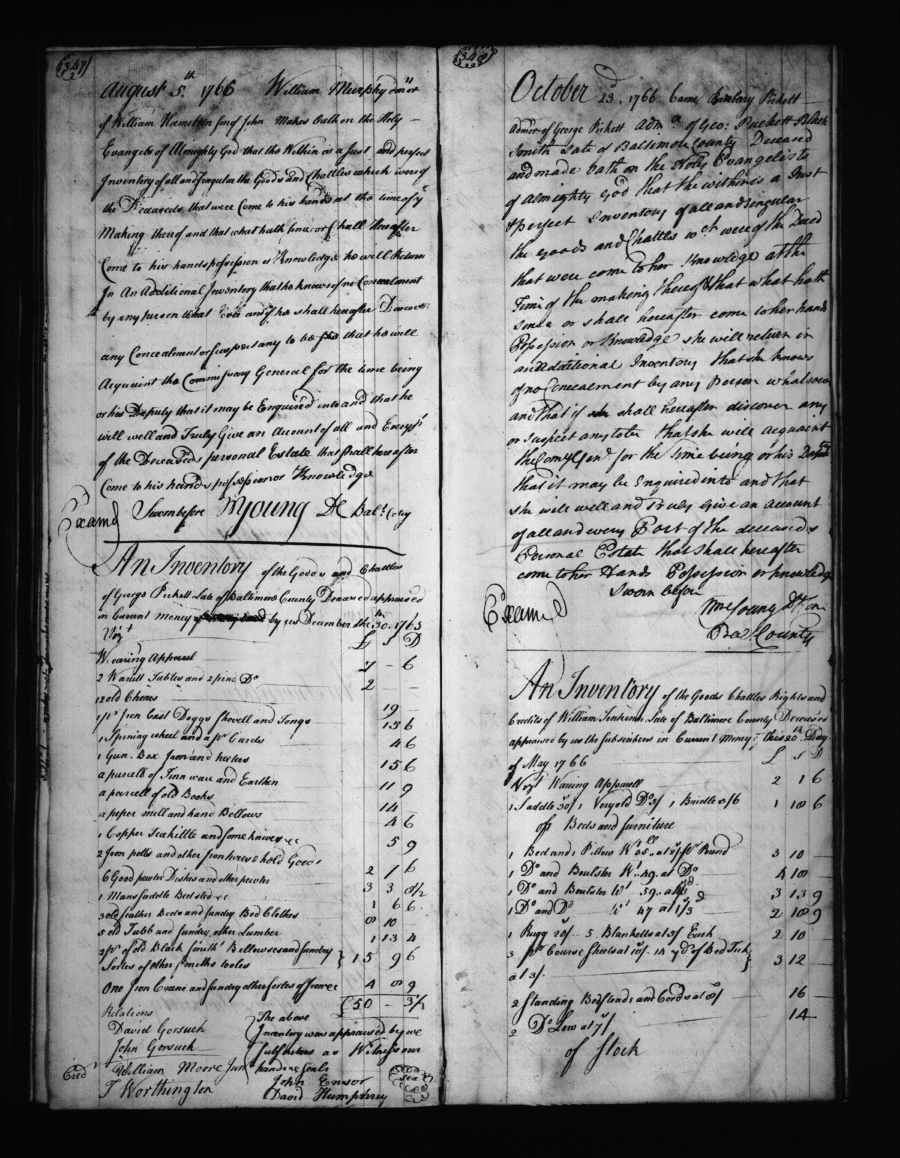 347
August 5th 1766 William Murphy admr
of William Hamelton son of John Makes Oath on the Holy
Evangels of Almighty God that the Within is a Just and perfect
Inventory of all and singular the Goods and Chattles which were of
the Deceaseds that were Come to his hands at the time of ye
Making thereof and that what hath since or Shall Hereafter
Come to his hands possession or Knowledge he will Return
In An Additional Inventory that he knows of no Concealment
by any person What Ever and if he shall hereafter Discover
any Concealment or suspect any to be that he will
Acquaint the Commissary General for the time being
or his Deputy that it may be Enquired into and that he
will well and Truly Give an Account of all and Every pt
of the Deceaseds personal Estate that shall hereafter
Come to his hands possession or Knowledge
Examd Sworn before W Young DC Balt. Coty
An Inventory of the Goods and Chattles
of George Pickett Late of Baltimore County Deceased appraised
in Current money by us December the 30th 1765
Vizt £ S D
Wearing Apparel 7 - 6
2 Wallnutt Tables and 2 pine Do 2 - -
12 old Chairs 19 -
1 pr Iron Cast Doggs Shovell and Tongs 15 6
1 Spining wheel and a pr Cards 4 6
1 Gun. Box Iron and heters 15 6
a parcell of Tinn ware and Earthen 11 9
a parcell of old Books 14 -
a peper mill and hand Bellows 4 6
1 Copper Teakittle and some knives &c 5 9
2 Iron potts and other Iron hous hold Goods 2 1 6
6 Good pewter Dishes and other pewter 3 3 8½
1 Mans saddle Bedsted &c 1 6 6
3 old feather Beds and sundry Bed Clothes 8 10
5 old Tubb and sundry other Lumber 1 13 4
3 pr of old Black Smiths Bellowses and sundry
Sortes of other Smiths tooles } 15 9 6
One Iron Crane and sundry other sortes of Iron &c 4 8 9
£50 - 3½
Relations
David Gorsuch
John Gorsuch
Cred
William Moore Junr
T Worthington
The above
Inventory was appraised by we
Subscribers as Witness our
hands & Seals
John Ensor
David Humphrey
Seal
348
October 23d, 1766 Came Barbary Pickett
Admx of George Pickett Admx of Geo: Puckett Black
Smith Late of Baltimore County Deceased
and made oath on the Holy Evangelists
of Almighty God that the within is a Just
& perfect Inventory of all and singular
the goods and Chattles wch were of the Deced
that were come to her Knowledge at the
Time of the making thereof & that what hath
since or shall hereafter come to her hands
Possession or Knowledge she will return in
an additional Inventory that she knows
of no concealment by any Person whatsoever
and that if she shall hereafter discover any
or suspect any to be that she will acquaint
the Comy Genl for the time being or his Deputy
that it may be Enquired into and that
she will well and truly give an account
of all and every Part of the deceaseds
Personal Estate that shall hereafter
come to her Hands Possession or knowledge
Sworn before
Examd Wm Young DC on
Bal County
An Inventory of the Goods Chattles Rights and
Credits of William Jenkins Late of Baltimore County Deceased
appraised by us the subscribers in Current Money, this 20th Day
of May 1766 £ S D
Vizt Waring Apparell 2 1 6
1 Saddle 30/ 1 Very old Do 3/ 1 Bridle 5/6 1 18 6
of Beds and furniture
1 Bed and 1 Pillow Wt 35 lb at 2/ pr Pound 3 10 -
1 Do and Boulster Wt 49. at Do 4 18
1 Do and Boulster Wt 59. at 3 13 9
1 Do and Do Wt 47 at 1/3 2 18 9
1 Rugg 20/.. 5 Blanketts at 5/ Each 2 10
3 pr Course Sheets at 10/. 14 yds of Bed Tick
at 3/. } 3 12 -
2 Standing Bedsteads and Cords at 8/ 16 -
2 Do Low at 7/ 14
of Stock